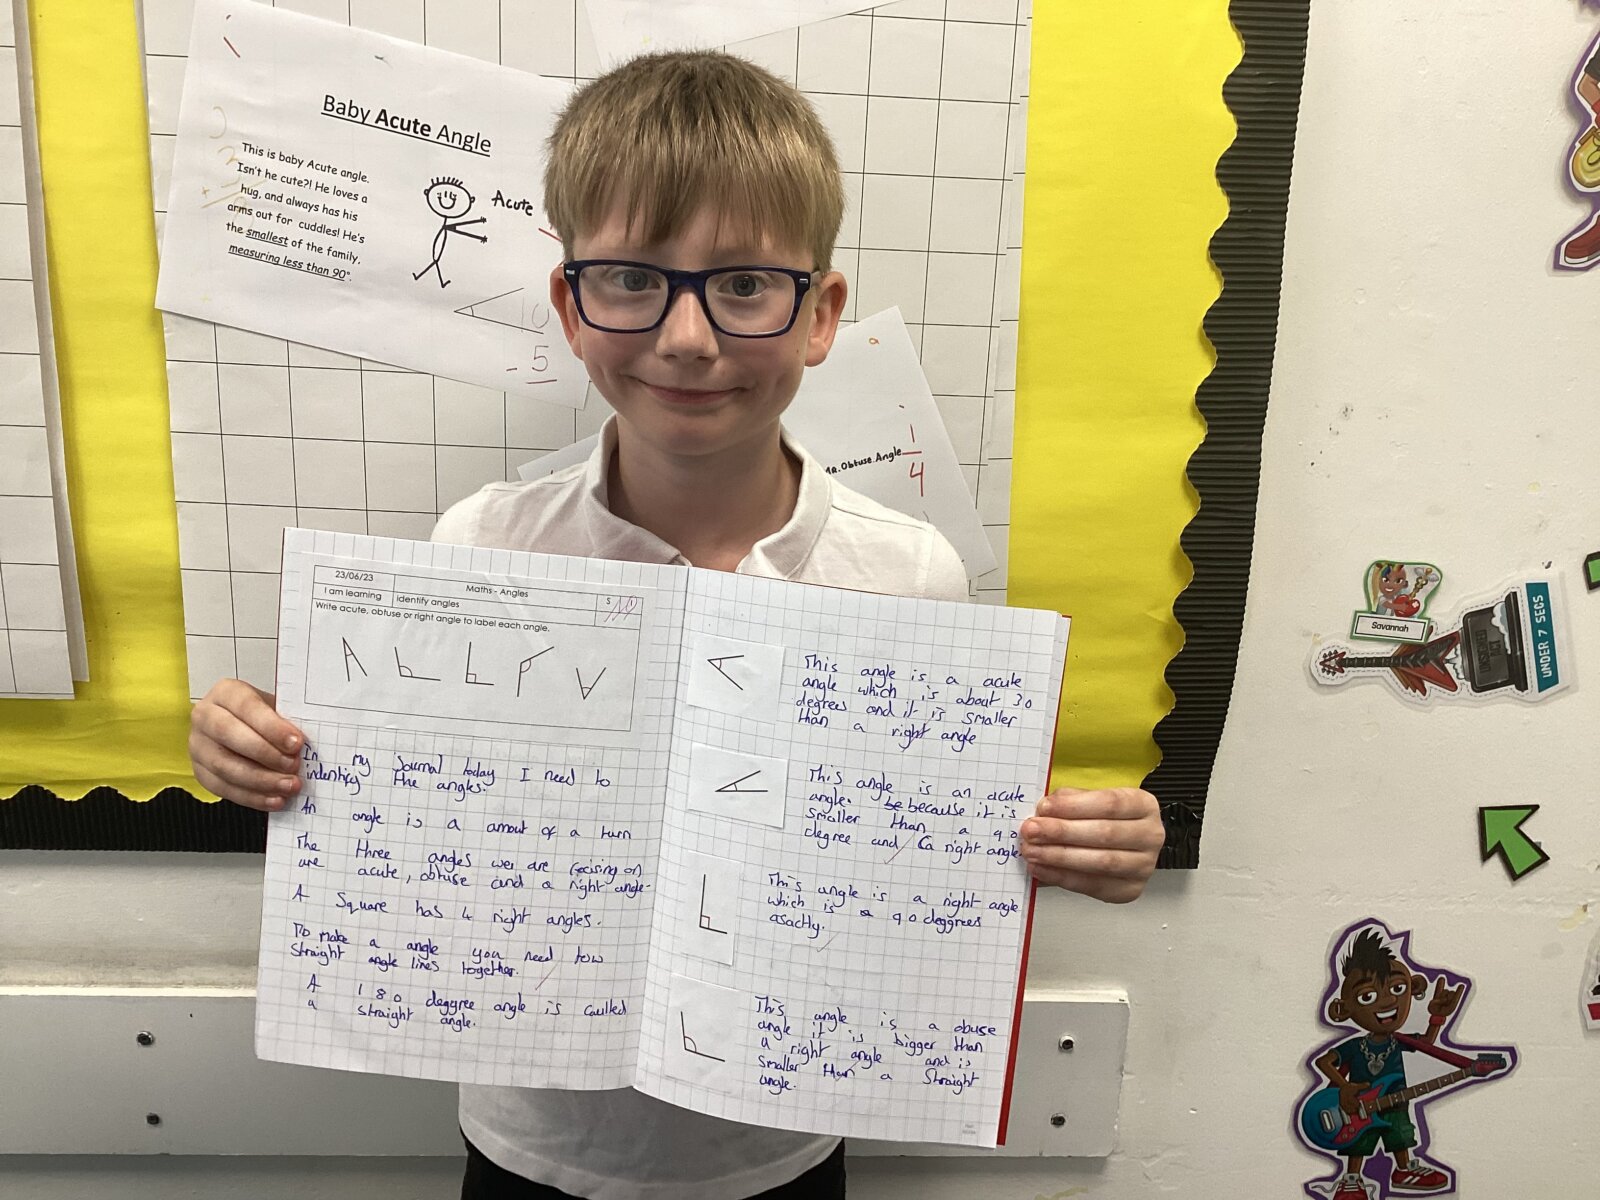 Baby Acute Angle
This is baby Acute angle.
Isn't he cute?! He loves a
hug, and always has his
arms out for cuddles! He's
the smallest of the family,
measuring less than 90°.
Acute
10
- 5
Mr. Obtuse Angle
1
4
23/06/23
Maths - Angles
S
I am learning
identify angles
Write acute, obtuse or right angle to label each angle.
In my Journal today I need to
indentify the angles.
An angle is a amout of a turn
The three angles we are focising on
are acute, obtuse and a right angle.
A Square has 4 right angles.
To make a angle you need tow
Straight angle lines together.
A 180 deggree angle is caulled
a straight angle.
This angle is a acute
angle which is about 30
degrees and it is smaller
than a right angle
This angle is an acute
angle. be because it is
smaller than a 90
degree and Ca right angle.
This angle is a right angle
which is a 90 deggrees
asactly.
This angle is a obuse
angle it is bigger than
a right angle and is
smaller than a Straight
angle.
Savannah
UNDER 7 SECS